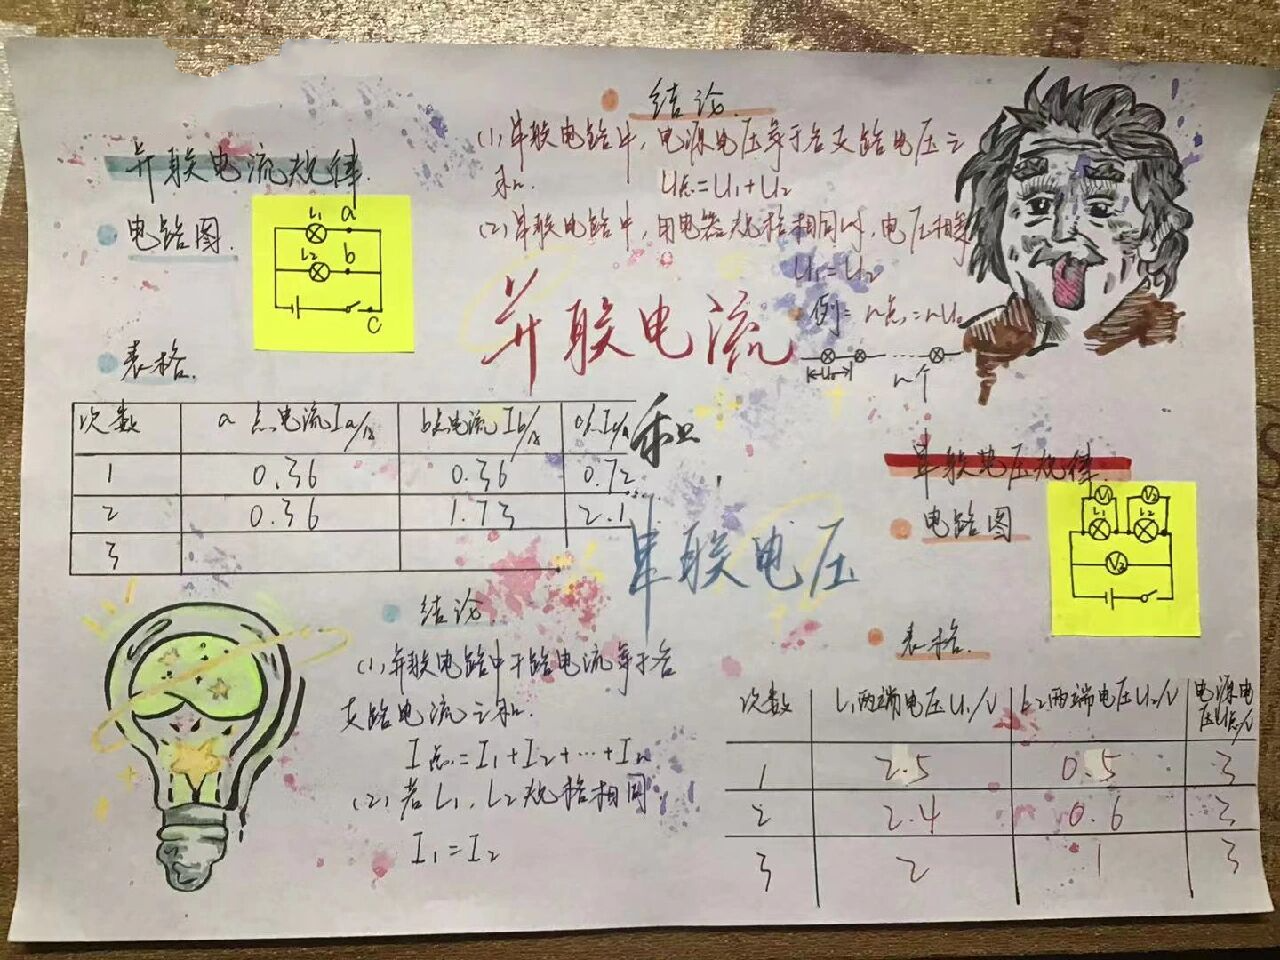 并联电流规律.
电路图.
L₁ a
L₂ b
c
表格.
次数 a点电流Ia/A b点电流Ib/A
1 0.36 0.36 0.72
2 0.36 1.73 2.1
3
结论
(1)并联电路中干路电流等于各
支路电流之和.
I总=I₁+I₂+…+In
(2)若L₁、L₂规格相同
I₁=I₂
结论.
(1)串联电路中,电源电压等于各支路电压之
和. U总=U₁+U₂
(2)串联电路中,用电器规格相同时,电压相等
U₁=U₂
例:
n个
并联电流
和
串联电压
串联电压规律
电路图
V₁ V₂
L₁ L₂
表格.
次数 L₁两端电压U₁/V L₂两端电压U₂/V 电源电
压U总/V
1 2.5 0.5 3
2 2.4 0.6 3
3 2 1 3